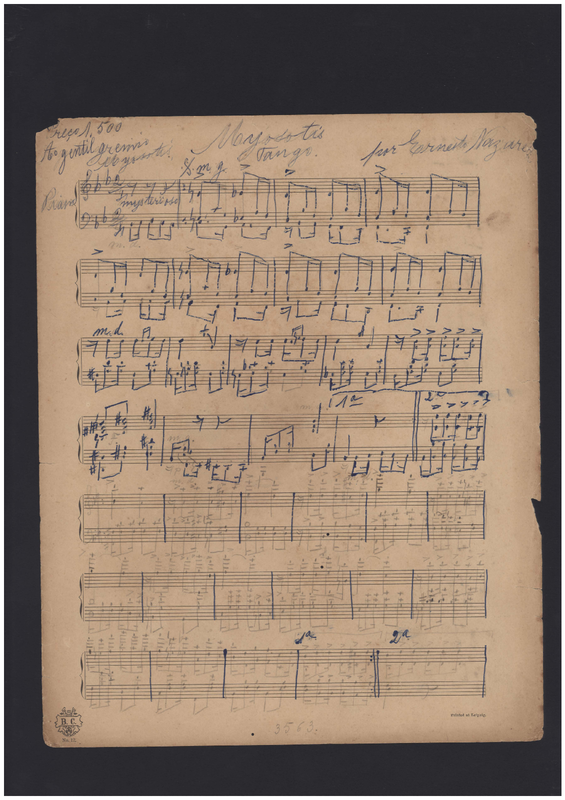 Preço 1,500
Myosotis
Ao gentil gremio
Myosotis.
Tango.
por Ernesto Nazareth
m.g.
Piano
mysterioso
m.d.
1ª
2ª
1ª 2ª
B. C.
No. 12.
3563.